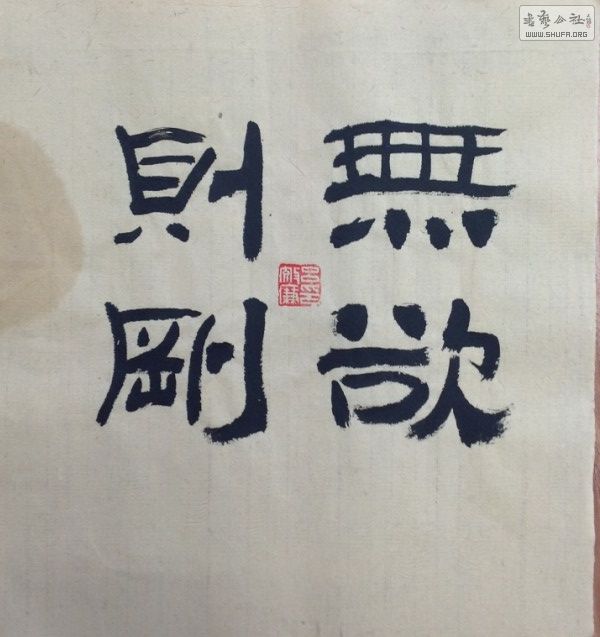 無欲
則剛
書藝公社
WWW.SHUFA.ORG